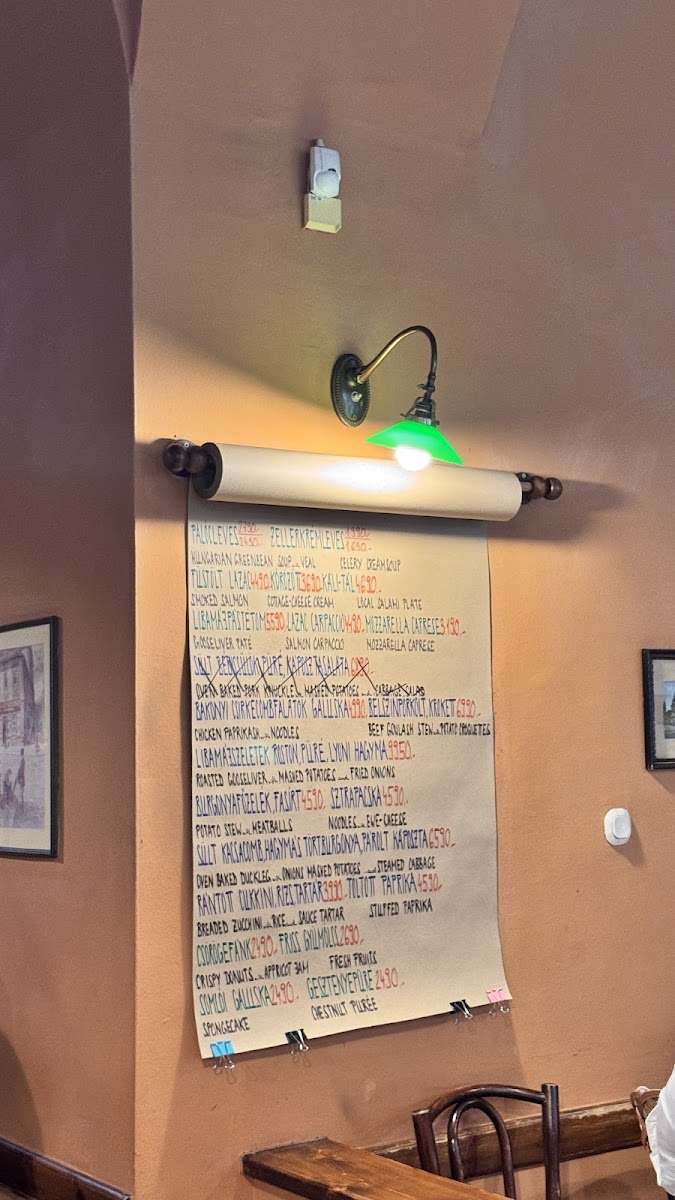 PALÓCLEVES 2790.- 3490.- ZELLERKRÉMLEVES 1390.- 1690.-
HUNGARIAN GREENBEAN SOUP with VEAL CELERY CREAMSOUP
FÜSTÖLT LAZAC 4490.- KÖRÖZÖTT 3690.- KÁLI-TÁL 4690.-
SMOKED SALMON COTAGE-CHEESE CREAM LOCAL SALAMI PLATE
LIBAMÁJPÁSTÉTOM 5590.- LAZAC CARPACCIO 4490.- MOZZARELLA CAPRESE 3190.-
GOOSELIVER PATÉ SALMON CARPACCIO MOZZARELLA CAPRESE
SÜLT PÜRÉ, KÁPOSZTASALÁTA
OVEN BAKED PORK KNUCKLE with MASHED POTATOES and CABBAGE SALAD
BAKONYI CSIRKECOMBFALATOK GALUSKA 4990.- BÉLSZÍNPÖRKÖLT, KROKETT 6990.-
CHICKEN PAPRIKASH with NOODLES BEEF GOULASH STEW with POTATO CROQUETTES
LIBAMÁJSZELETEK ROSTON, PÜRÉ, LYONI HAGYMA 9950.-
ROASTED GOOSELIVER with MASHED POTATOES and FRIED ONIONS
BURGONYAFŐZELÉK, FASÍRT 4590.- SZTRAPACSKA 4590.-
POTATO STEW with MEATBALLS NOODLES with EWE-CHEESE
SÜLT KACSACOMB, HAGYMÁS TÖRTBURGONYA, PÁROLT KÁPOSZTA 6590.-
OVEN BAKED DUCKLEG with ONIONS MASHED POTATOES and STEAMED CABBAGE
RÁNTOTT CUKKINI, RIZS, TARTÁR 3990.- TÖLTÖTT PAPRIKA 4590.-
BREADED ZUCCHINI with RICE and SAUCE TARTAR STUFFED PAPRIKA
CSÖRÖGEFÁNK 2490.- FRISS GYÜMÖLCS 2690.-
CRISPY DONUTS with APPRICOT JAM FRESH FRUITS
SOMLÓI GALUSKA 2490.- GESZTENYEPÜRÉ 2490.-
SPONGECAKE CHESTNUT PUREE